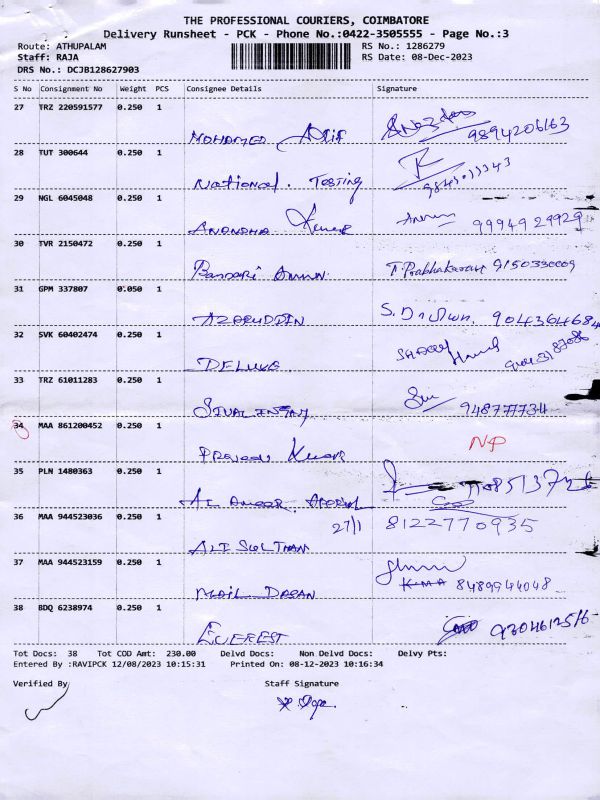 THE PROFESSIONAL COURIERS, COIMBATORE
Delivery Runsheet - PCK - Phone No.:0422-3505555 - Page No.:3
Route: ATHUPALAM RS No.: 1286279
Staff: RAJA RS Date: 08-Dec-2023
DRS No.: DCJB128627903
S No Consignment No Weight PCS Consignee Details Signature
27 TRZ 220591577 0.250 1
MOHAMED 9894206163
28 TUT 300644 0.250 1
National. Testing
29 NGL 6045048 0.250 1
ANANDHA Kumar 9994929929
30 TVR 2150472 0.250 1
Pannari Amman T. Prabhakaran 9150330009
31 GPM 337807 0.050 1
AZARUDDIN 904364684
32 SVK 60402474 0.250 1
DELUXE
33 TRZ 61011283 0.250 1
SIVALINGAM 948777734
34 MAA 861200452 0.250 1
PRAVEEN Kumar NP
35 PLN 1480363 0.250 1
AL
36 MAA 944523036 0.250 1 27/1 8122770935
ALI SULTHAN
37 MAA 944523159 0.250 1
MAIL DASAN KMA 8489944048
38 BDQ 6238974 0.250 1
EVEREST 9204612516
Tot Docs: 38 Tot COD Amt: 230.00 Delvd Docs: Non Delvd Docs: Delvy Pts:
Entered By :RAVIPCK 12/08/2023 10:15:31 Printed On: 08-12-2023 10:16:34
Verified By Staff Signature